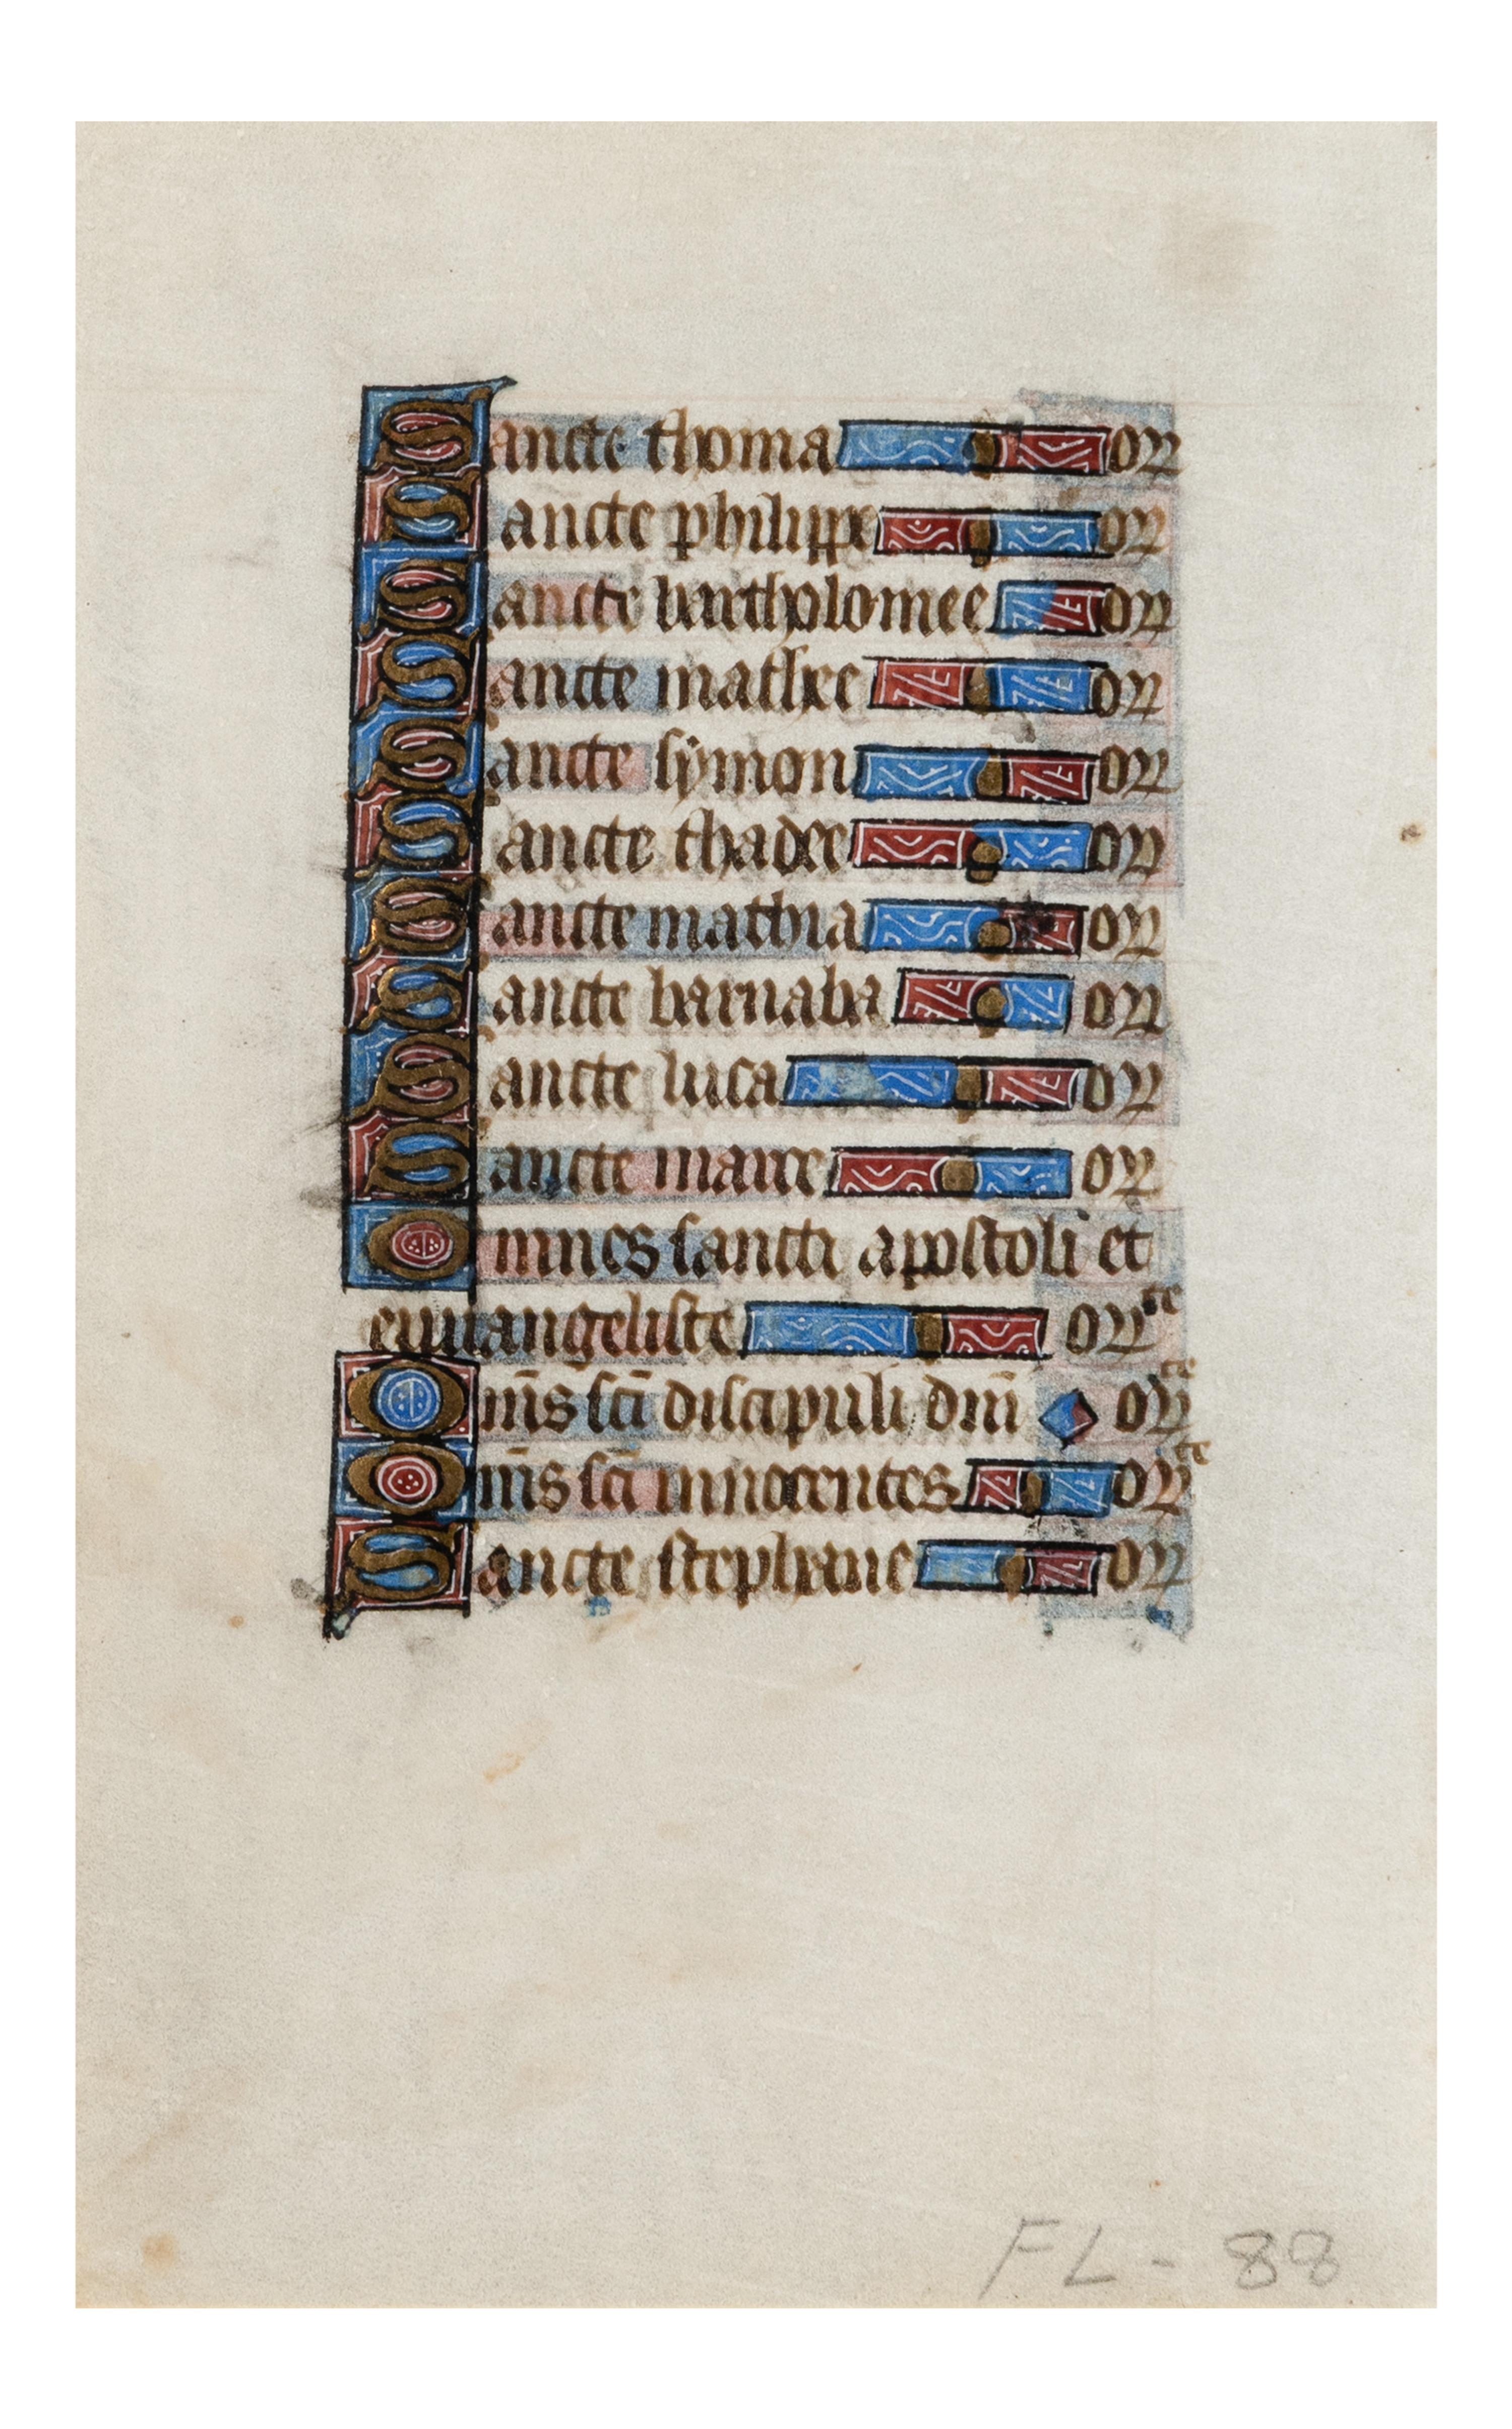 Sancte thoma or
Sancte philippe or
Sancte bartholomee or
Sancte mathee or
Sancte symon or
Sancte thadee or
Sancte mathia or
Sancte barnaba or
Sancte luca or
Sancte marce or
Omnes sancti apostoli et
euuangeliste or te
Om̄s sc̄i discipuli dn̄i or te
Om̄s sc̄i innocentes or te
Sancte stephane or
FL - 88